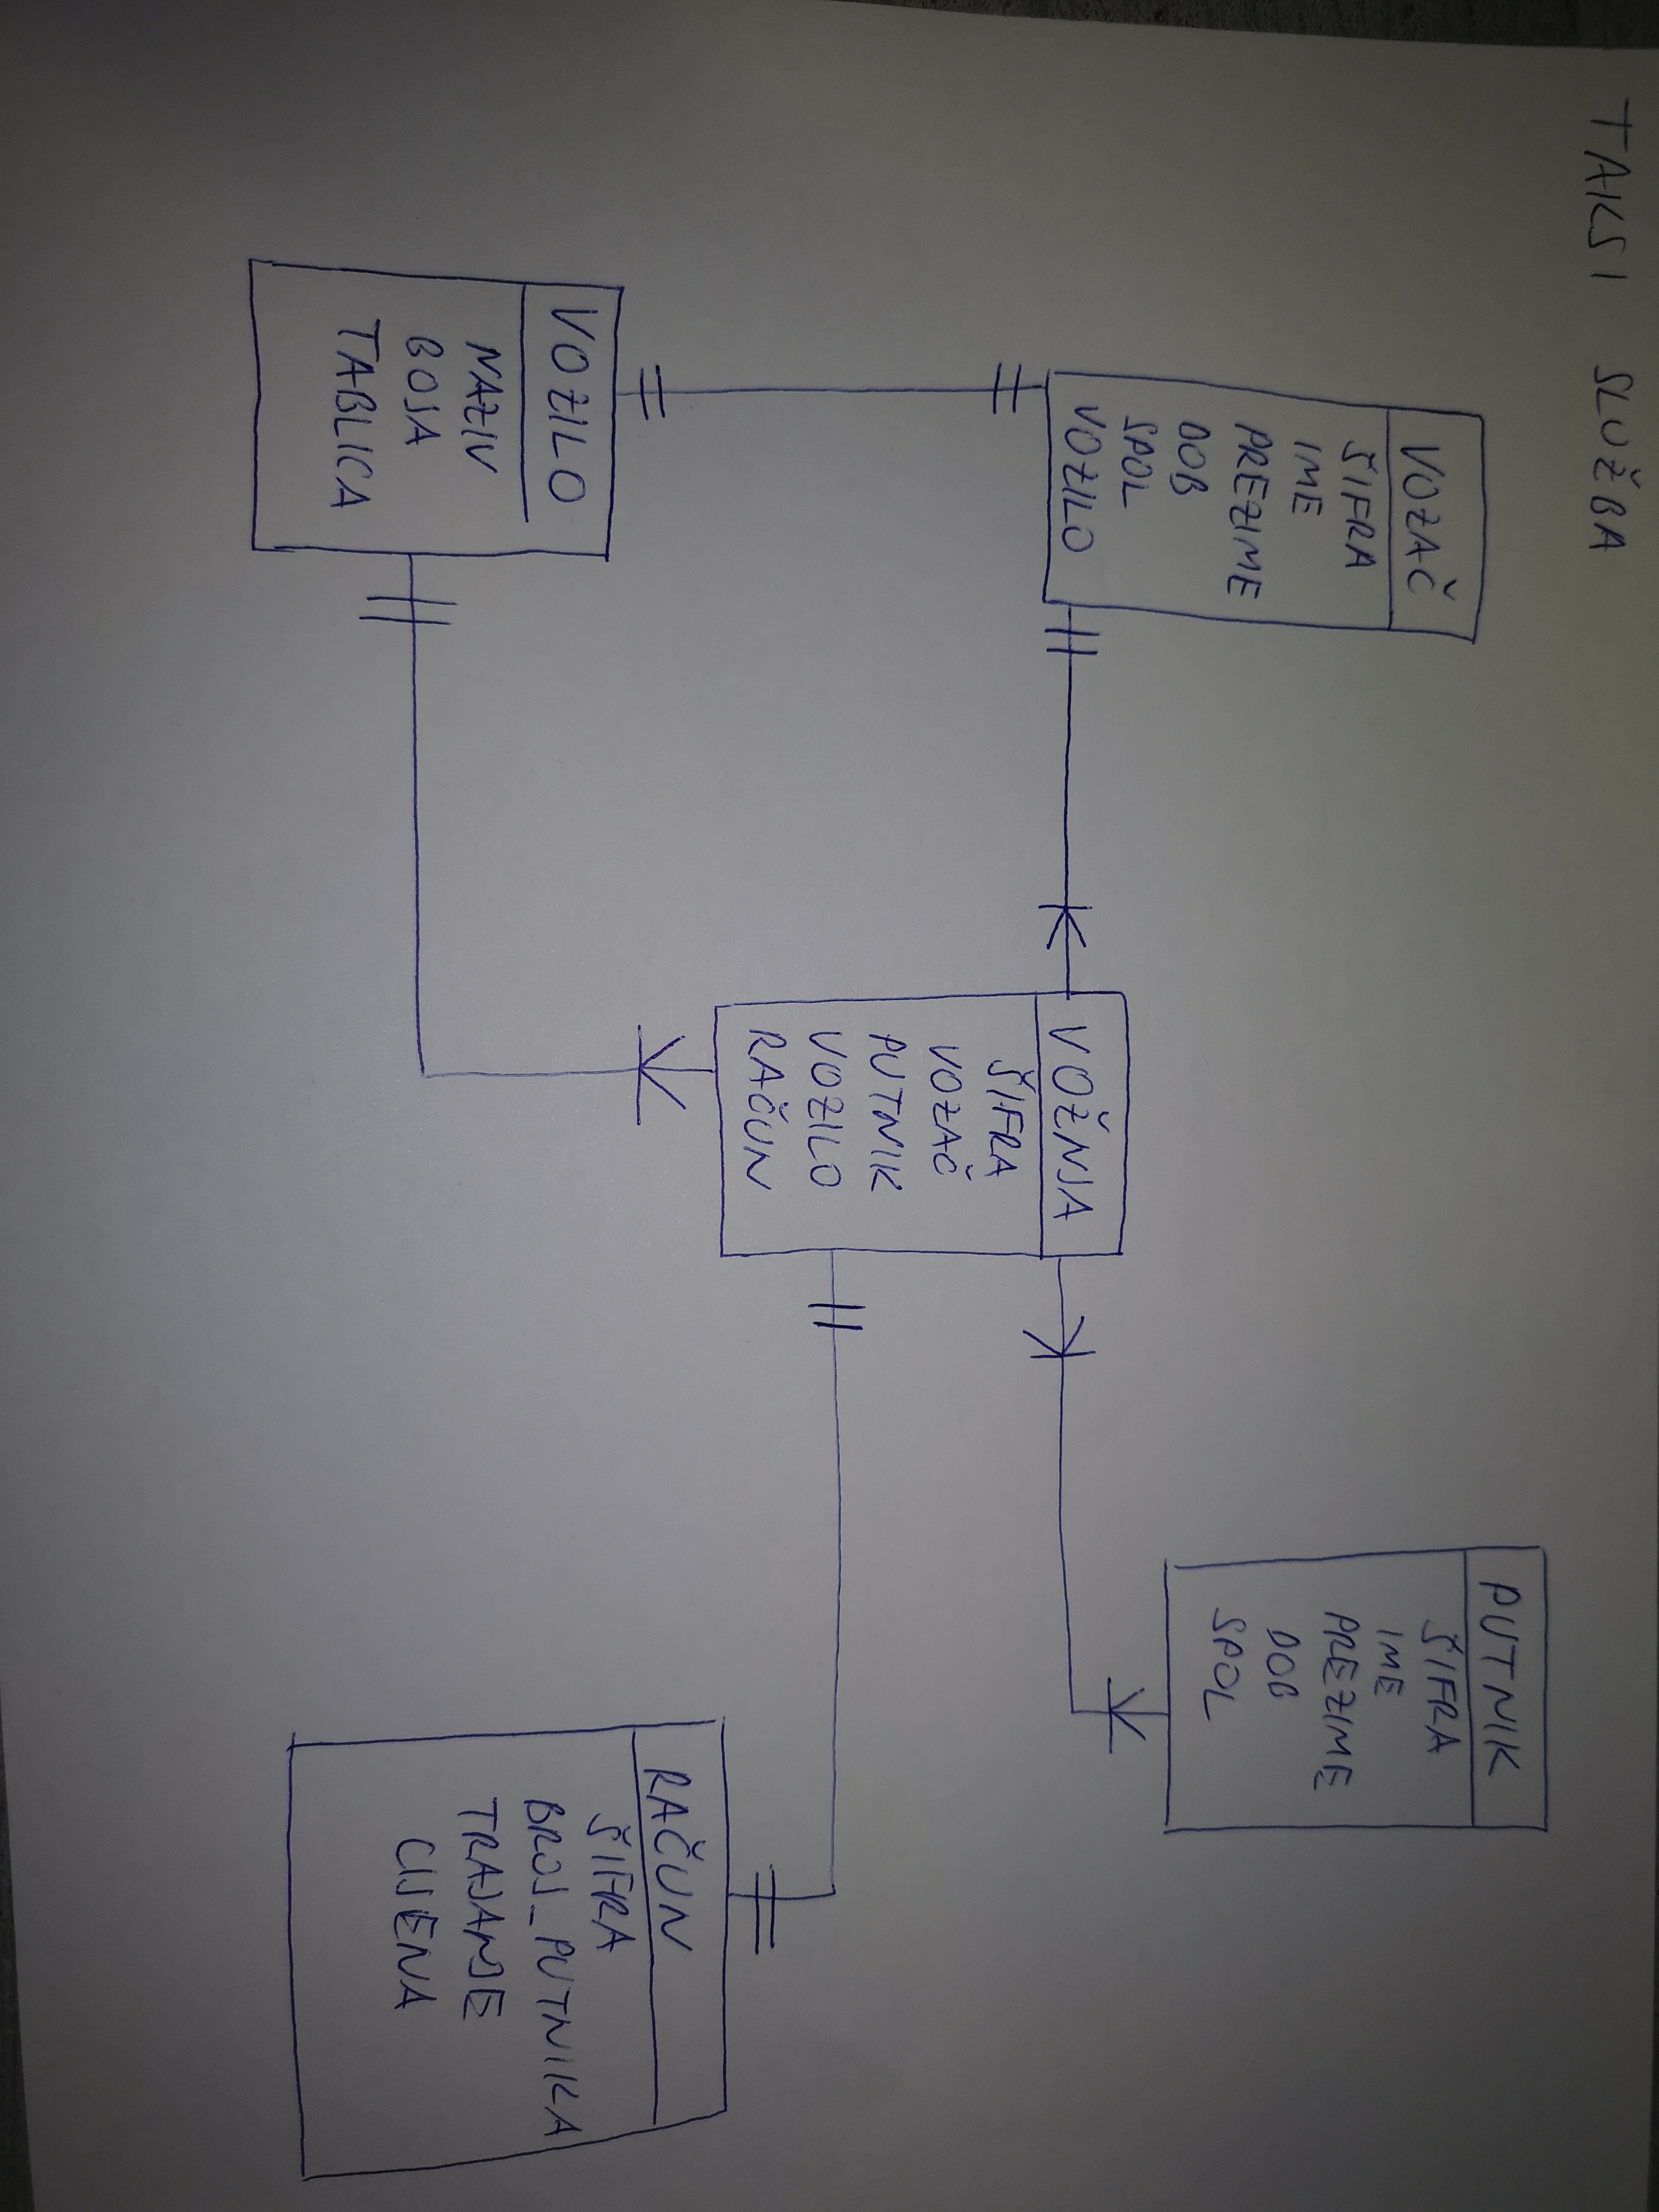 TAKSI SLUŽBA
VOZAČ
ŠIFRA
IME
PREZIME
DOB
SPOL
VOZILO
PUTNIK
ŠIFRA
IME
PREZIME
DOB
SPOL
VOŽNJA
ŠIFRA
VOZAČ
PUTNIK
VOZILO
RAČUN
VOZILO
NAZIV
BOJA
TABLICA
RAČUN
ŠIFRA
BROJ_PUTNIKA
TRAJANJE
CIJENA